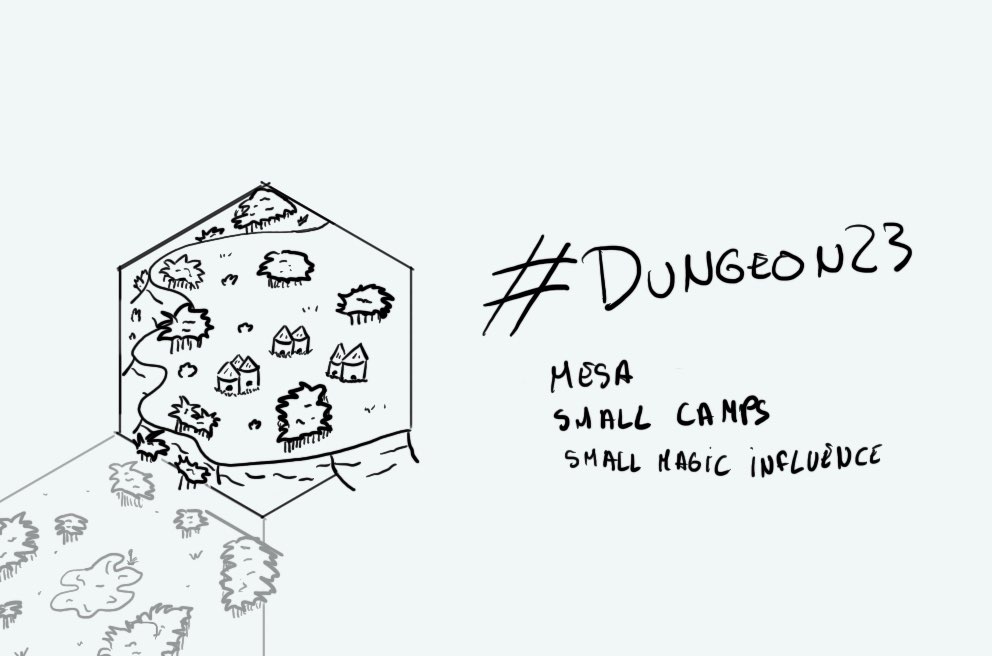 #DUNGEON23
MESA
SMALL CAMPS
SMALL MAGIC INFLUENCE